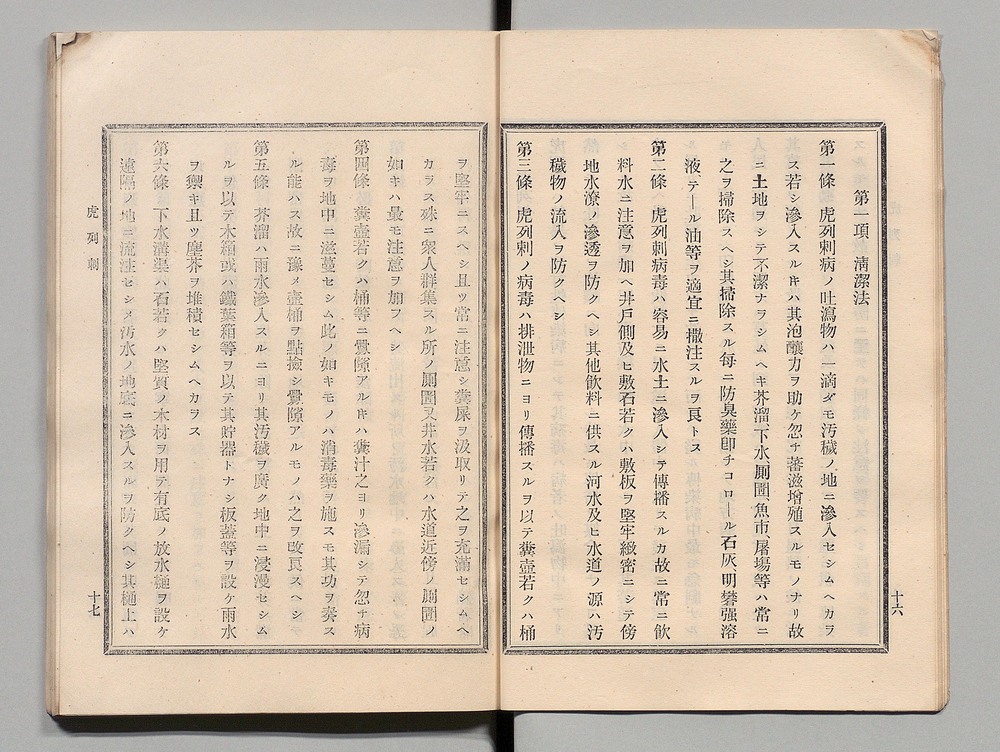 第一項 清潔法
第一條 虎列剌病ノ吐瀉物ハ一滴ダモ汚穢ノ地ニ滲入セシムヘカラ
ス若シ滲入スルヰハ其泡釀力ヲ助ケ忽チ蕃滋增殖スルモノナリ故
ニ土地ヲシテ不潔ナラシムヘキ芥溜、下水、厠圊、魚市、屠塲等ハ常ニ
之ヲ掃除スヘシ其掃除スル每ニ防臭藥卽チコロール石灰、明礬强溶
液、テール油等ヲ適宜ニ撒注スルヲ良トス
第二條 虎列剌病毒ハ容易ニ水土ニ滲入シテ傳播スルカ故ニ常ニ飮
料水ニ注意ヲ加ヘ井戸側及ヒ敷石若クハ敷板ヲ堅牢緻密ニシテ傍
地水潦ノ滲透ヲ防クヘシ其他飮料ニ供スル河水及ヒ水道ノ源ハ汚
穢物ノ流入ヲ防クヘシ
第三條 虎列剌ノ病毒ハ排泄物ニヨリ傳播スルヲ以テ糞壺若クハ桶
十六
ヲ堅牢ニスヘシ且ツ常ニ注意シ糞屎ヲ汲取リテ之ヲ充滿セシムヘ
カラス殊ニ衆人群集スル所ノ厠圊又井水若クハ水道近傍ノ厠圊ノ
如キハ最モ注意ヲ加フヘシ
第四條 糞壺若クハ桶等ニ釁隙アルヰハ糞汁之ヨリ滲漏シテ忽チ病
毒ヲ地中ニ滋蔓セシム此ノ如キモノハ消毒藥ヲ施スモ其功ヲ奏ス
ル能ハス故ニ豫メ壺桶ヲ點撿シ釁隙アルモノハ之ヲ改良スヘシ
第五條 芥溜ハ雨水滲入スルニヨリ其汚穢ヲ廣ク地中ニ浸漫セシム
ルヲ以テ木箱或ハ鐵葉箱等ヲ以テ其貯器トナシ板蓋等ヲ設ケ雨水
ヲ禦キ且ツ塵芥ヲ堆積セシムヘカラス
第六條 下水溝渠ハ石若クハ堅質ノ木材ヲ用テ有底ノ放水樋ヲ設ケ
遠隔ノ地ニ流注セシメ汚水ノ地底ニ滲入スルヲ防クヘシ其樋上ハ
虎列剌
十七